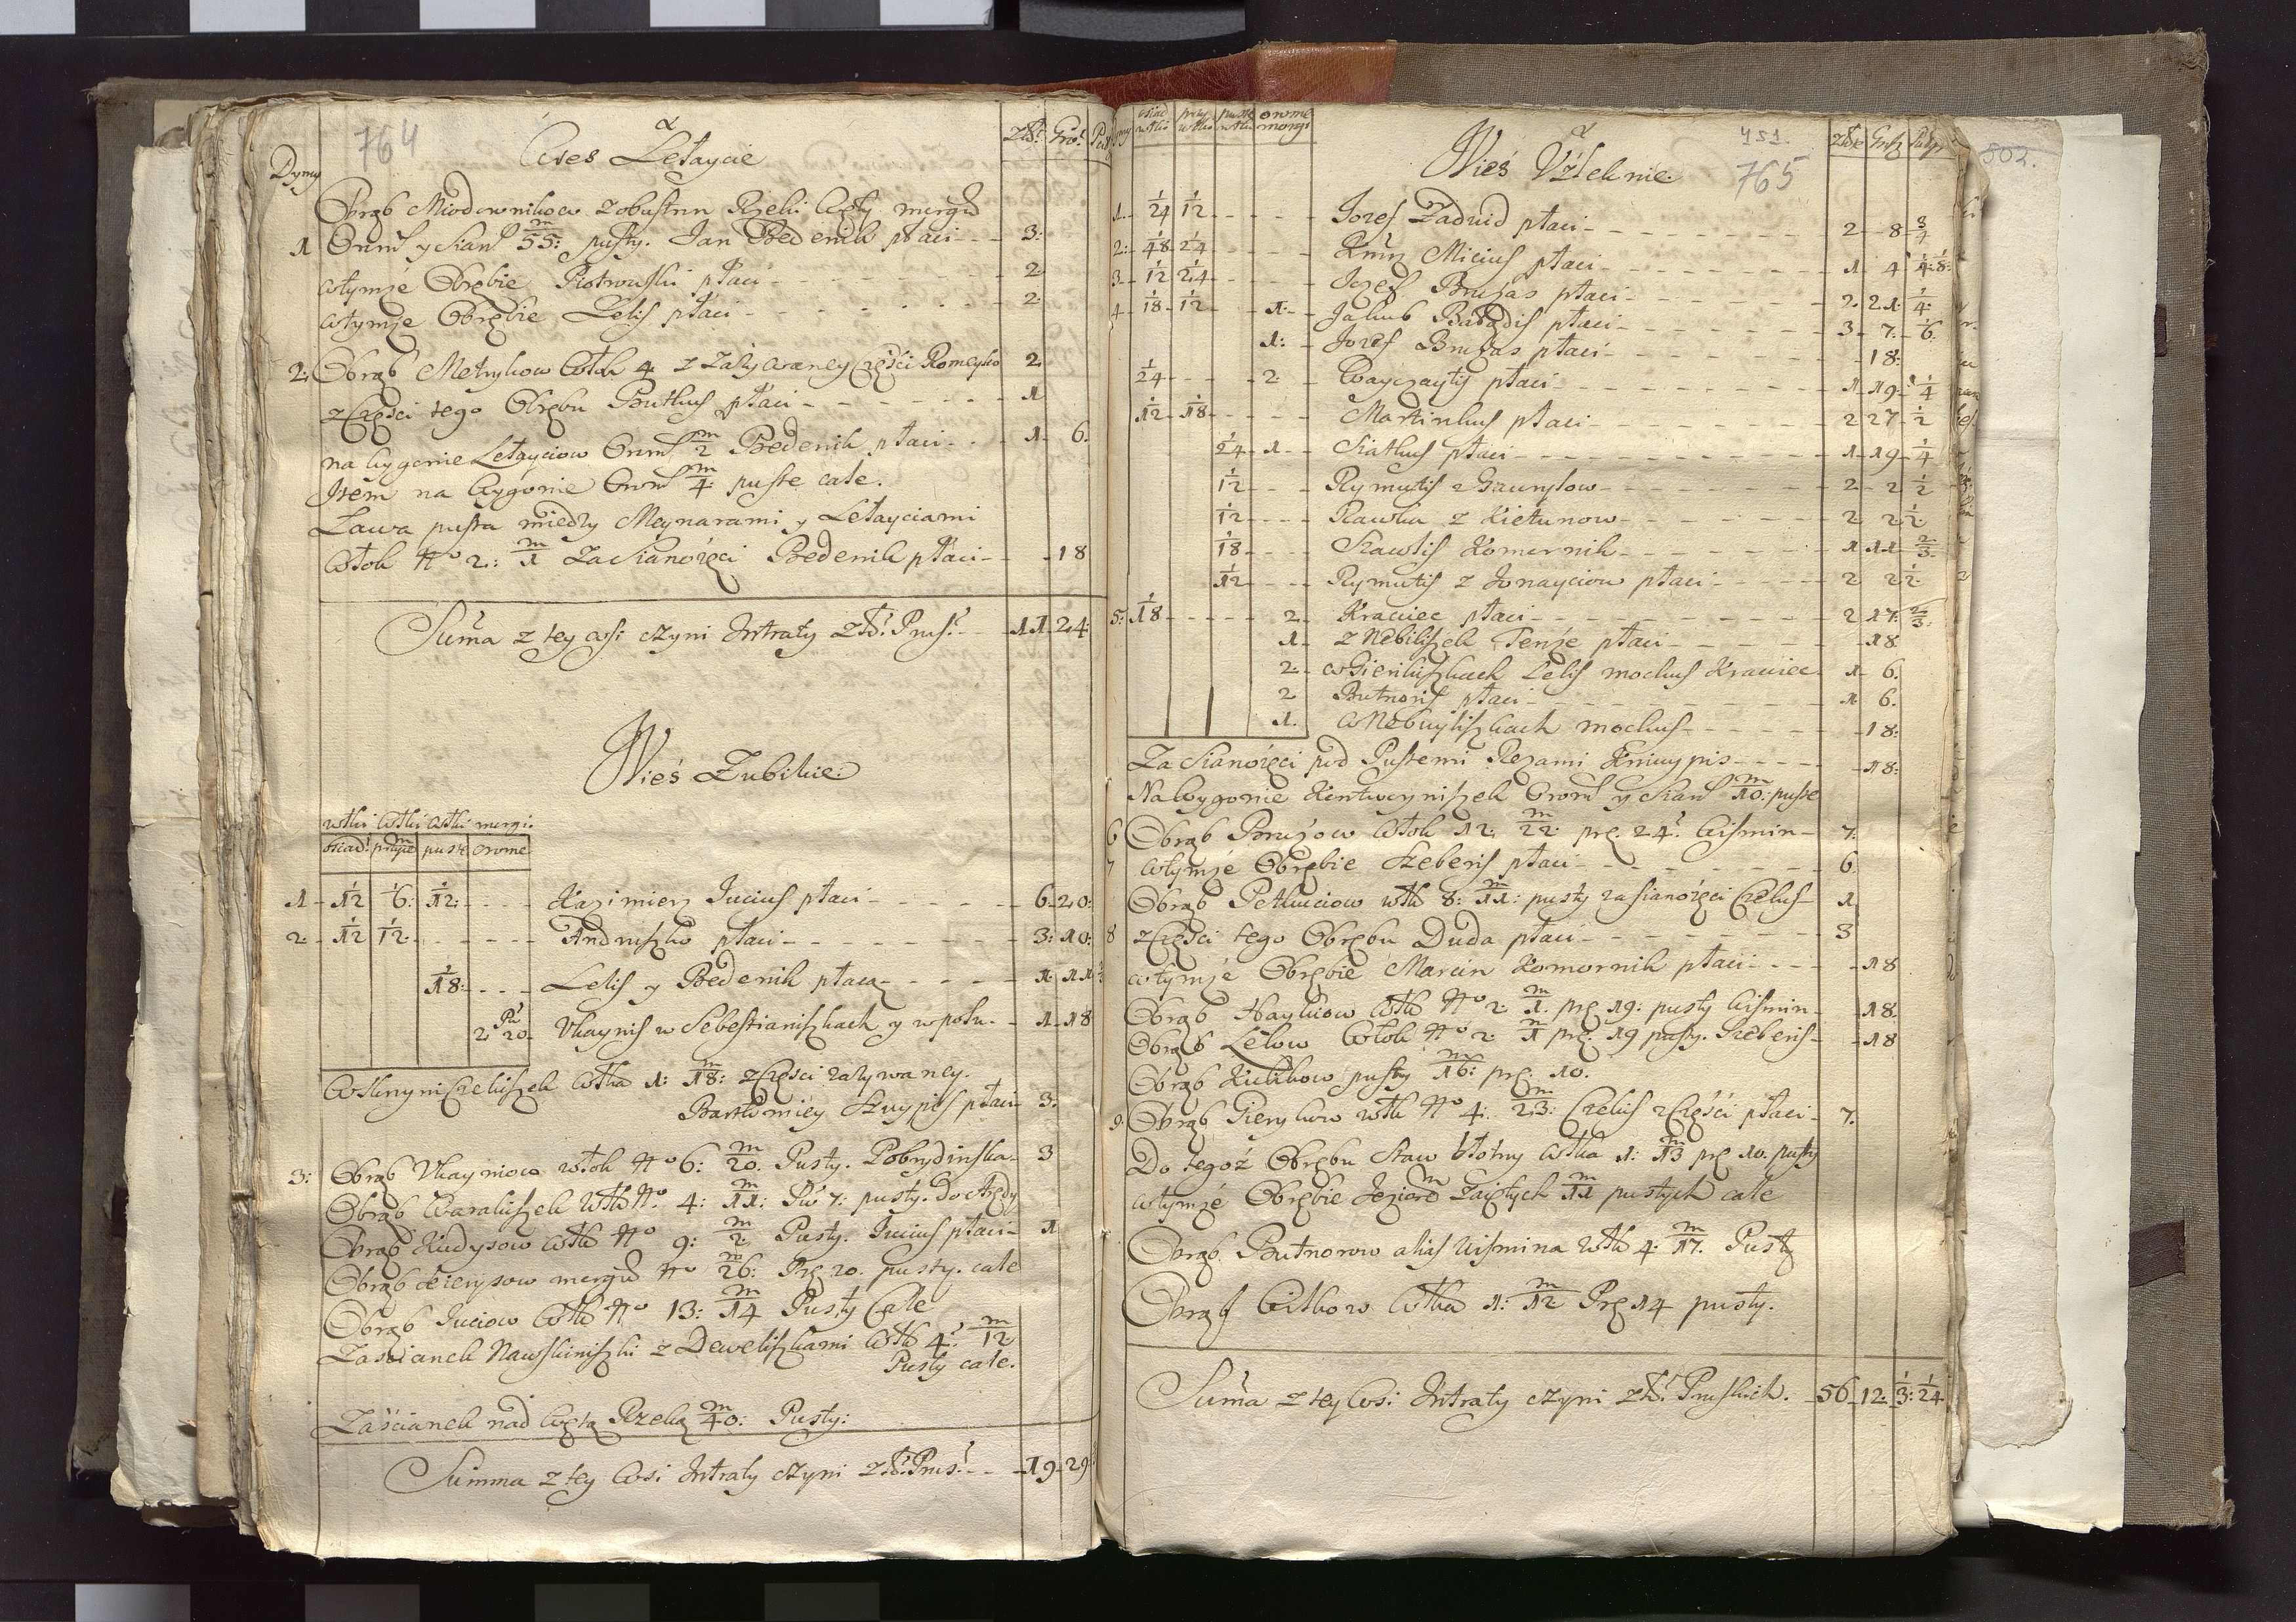 764
Dymy Wieś Łetaycie Złł: Gro: Pie
Obrąb Miodownikow z obustrn Rzeki Węty morgu
1 Orom y Sian m/55: pusty. Jan Bedenik płaci - - 3:
wtymże Obrębie Piotrowski płaci - - - 2
wtymże Obrębie Lelis płaci - - - 2
2: Obrąb Metrykow Włok 4 z Zażywaney Części 2
z Części tego Obrębu Butkus płaci - - - 1
na Wygonie Łetayciow Orom m/2 Bedenik płaci - - 1 - 6.
Item na Wygonie Orom m/4 puste całe.
Ława pusta między Meynarami y Łetayciami
Włok No 2: m/1 Za Sianożęci Bedenik płaci - - 18
Suma z tey Wsi czyni Intraty Złł: Prus: - - 11 24:
Wieś Łubikie:
włki włki włki morgi:
osiad: przyie puste orome
1 - 1/12 1/6: 1/12: - - - Kazimierz Jucius płaci - - - 6 - 20:
2 - 1/12 1/12 - - - Andruszko płaci - - - 3: 10:
1/18: - - - Lelis y Bedenik płacą - - - 1 - 11
2 Pū 20 Ukaynis w Sebestianiszkach y w połu - - 1 - 18
Włka 1: m/18: z Części zażywaney.
Bartłomiey płaci 3:
3: Obrąb Ukayniow włok No 6: m/20. Pusty. Pobrydinska - 3
Obrąb Waraliszek Włk No 4: m/11: Pū 7: pusty. Do
Obrąb Kudysow Włk No 9: m/2 Pusty. Jucius płaci - 1
Obrąb morgu No m/26: Prę 20. pusty. całe
Obrąb Juciow Włk No 13: m/14 Pusty Całe
Zascianek Nawskiniszki z Deweliszkami Włk 4: m/12
Pusty całe.
Zaścianek nad Wętą Rzeką m/40: Pusty:
Summa z tey Wsi Intraty czyni Złł: Prus: - - 19 - 29
osiad włki przy włki puste włki orome morgi
Wieś Użleknie 451. 765 Złote Grosz 802.
1 - 1/24 1/12 - - - Jozef Zadwid płaci - - - 2 - 8 - 3/4
2: 1/48 1/24 - - - Micius płaci - - - 1 - 4 1/4: 1/8:
3 - 1/12 1/24 - - - Jozef Brużas płaci - - - 2 - 21: 1/4:
4 - 1/18 1/12 - - 1: - Jakub płaci - - - 3 - 7: - 1/6
1: - Jozef Brużas płaci - - - 18:
1/24 - - - 2 - Wayczaytis płaci - - - 1 - 19 - 1/4
1/12 - 1/18 - - - Martinkus płaci - - - 2 27 - 1/2
1/24 - 1 - Siatkus płaci - - - 1 - 19 - 1/4
1/12 - - Rymutis z Gaurylow - - - 2 - 2 1/2
1/12 - - - Rawka z Kiełunow - - - 2 2 1/2
1/18 - - Szawlis Komornik - - - 1 11 - 2/3
1/12 - - - Rymutis z Jonayciow płaci - - - 2 2 1/2
5: 1/18 - - - 2. Krawiec płaci - - - 2 17: 2/3:
1 - z Nebiliszek Tenże płaci - - - 18
2: - w Gierkiszkach Lelis mockus Krawiec - 1 - 6.
2 Butnoris płaci - - - 1 6.
1. w Nebuyliszkach mockus - - - 18:
Za Sianożęci pod Pustemi Rezami Kniuypis - - - 18:
Na Wygonie Kontwoyniszek Orom y Sian m/10: puste
6 Obrąb Brużow Włok 12: m/22: prę 24: Wismin - 7:
7 wtymże Obrębie Szeberis płaci - - - 6
Obrąb Petkuciow włk 8: m/11: pusty za sianożęci Czelus - 1
8 z Części tego Obrębu Duda płaci - - - 3
wtymże Obrębie Marcin Komornik płaci - - - 18
Obrąb Hayluow Włk No 2: m/1. prę 19: pusty Wismin - 18.
Obrąb Lelow Włok No 2 m/1 prę. 19 pusty. Szeberis - 18
Obrąb Kulikow pusty m/16: prę 10.
9. Obrąb Gierykow włk No 4: m/23: Czelus z Części płaci - 7.
Do tegoż Obrębu Staw błotny Włka 1: m/13 prę 10. pusty
wtymże Obrębie Jezioro Zaiętych m/11 pustych całe
Obrąb Butnorow alias Wismina Włk 4: m/17. Pusty
Obrąb Witkow Włka 1: m/12 Prę 14 pusty.
Suma z tey Wsi Intraty czyni Złł: Pruskich. - 56 - 12: 1/3: 1/24